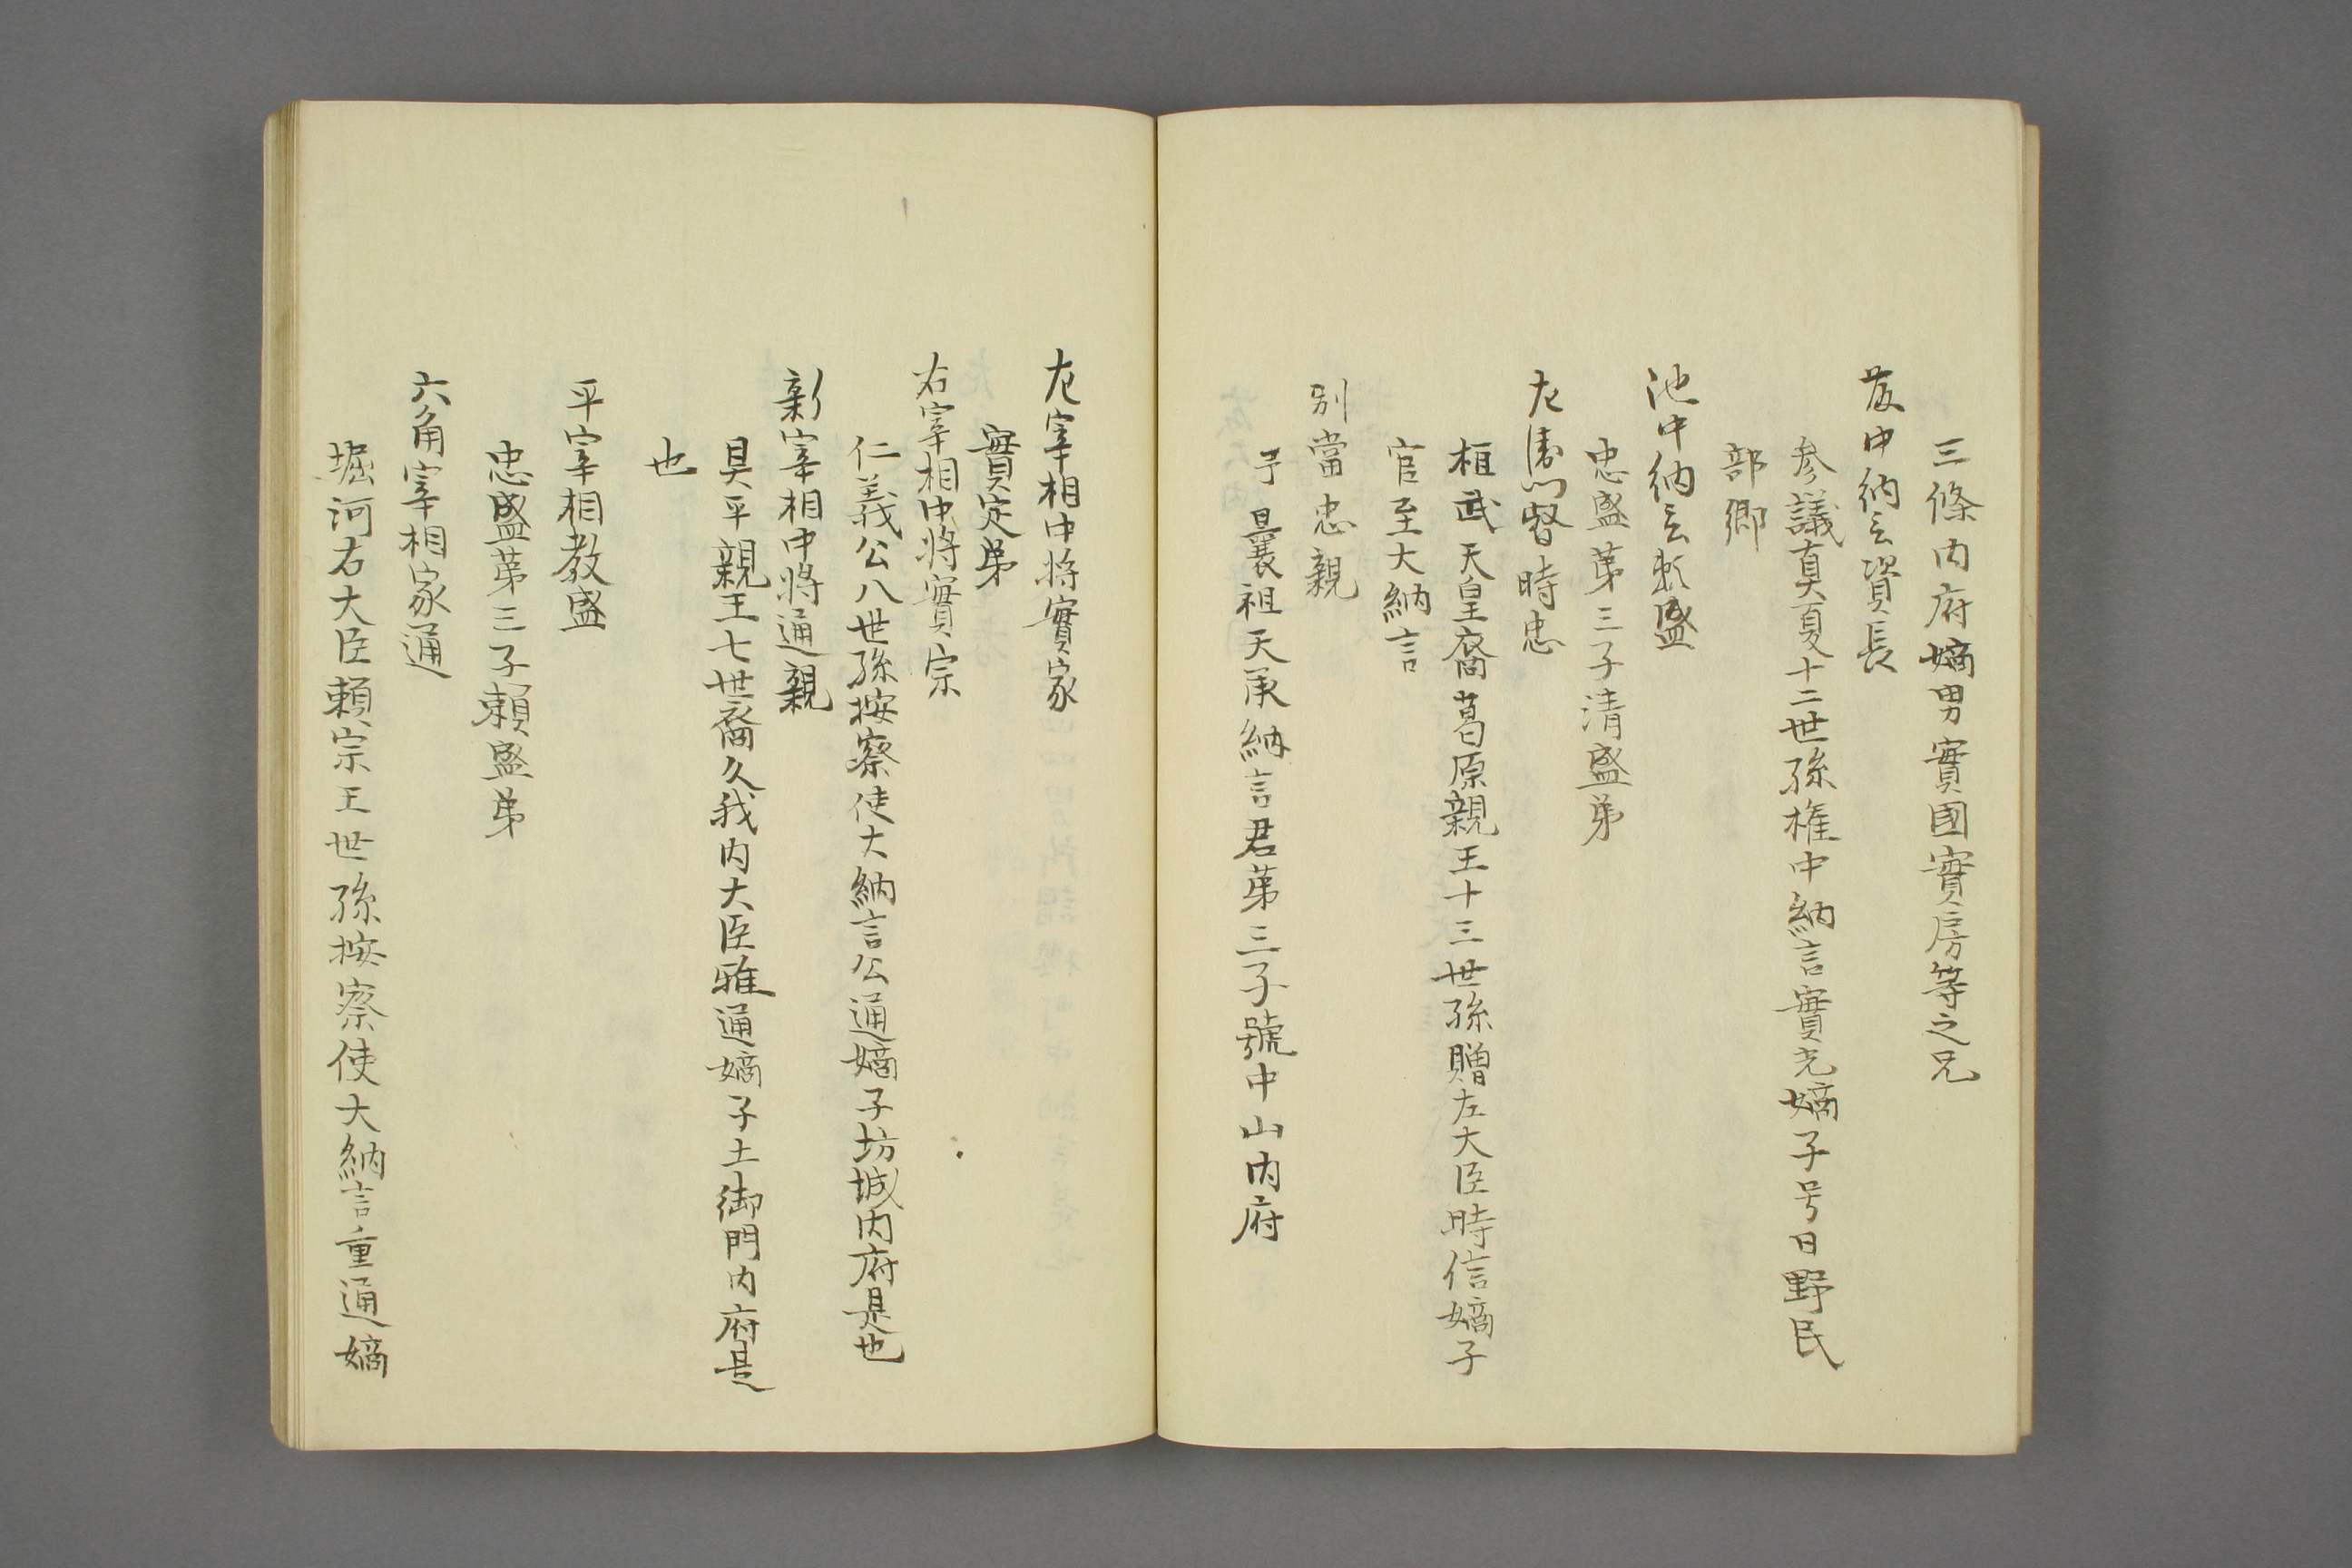 三條内府嫡男實國實房等之兄
藤中納言資長
参議真夏十二世孫権中納言實光嫡子号日野民
部卿
池中納言頼盛
忠盛第三子清盛弟
左衛門督時忠
桓武天皇裔葛原親王十三世孫贈左大臣時信嫡子
官至大納言
別當忠親
予曩祖天承納言君第三子號中山内府
左宰相中将實家
實定弟
右宰相中将實宗
仁義公八世孫按察使大納言公通嫡子坊城内府是也
新宰相中将通親
具平親王七世裔久我内大臣雅通嫡子土御門内府是
也
平宰相教盛
忠盛第三子頼盛弟
六角宰相家通
堀河右大臣頼宗王世孫按察使大納言重通嫡